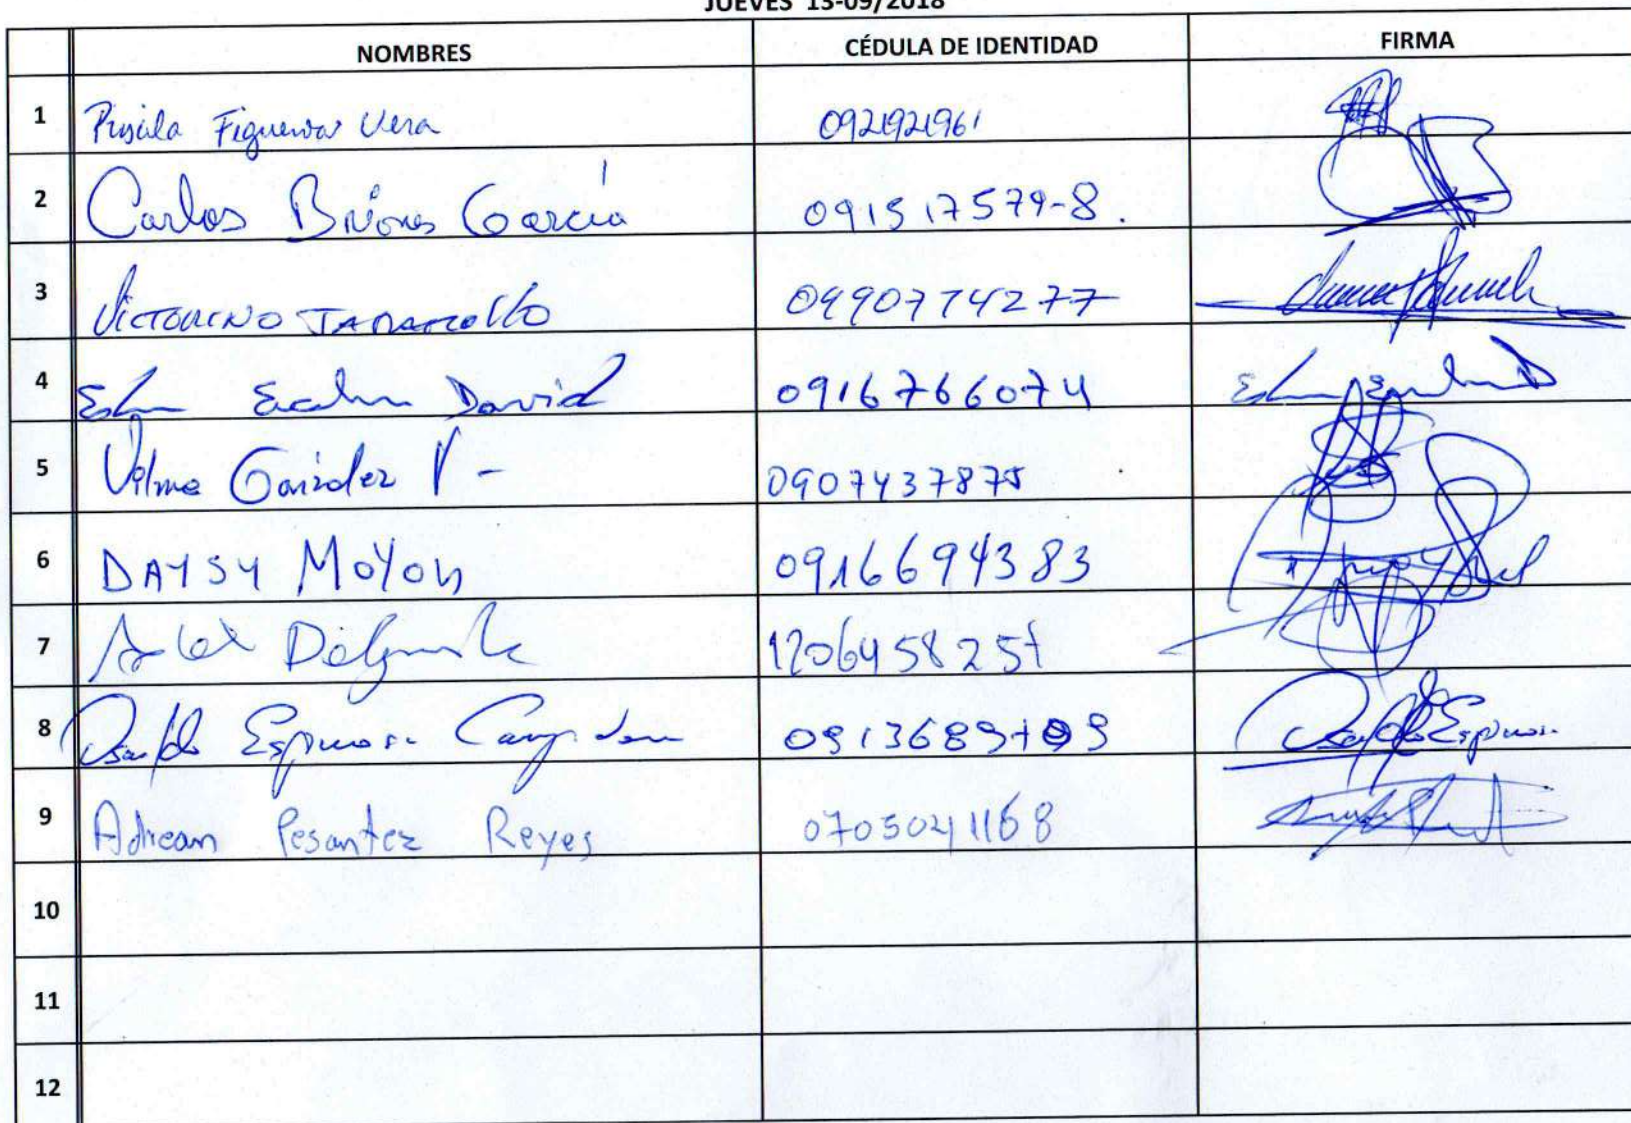 JUEVES 13-09/2018
NOMBRES CÉDULA DE IDENTIDAD FIRMA
1 Figueroa Vera 0921921961
2 Carlos Briones García 091517579-8.
3 Victorino Jaramillo 0990774277
4 David 0916766074
5 Vilma González V - 0907437875
6 DAYSY MOYON 0916694383
7 1206458257
8 Osvaldo Espinosa
9 Adrean Pesantez Reyes 0705041168
10
11
12